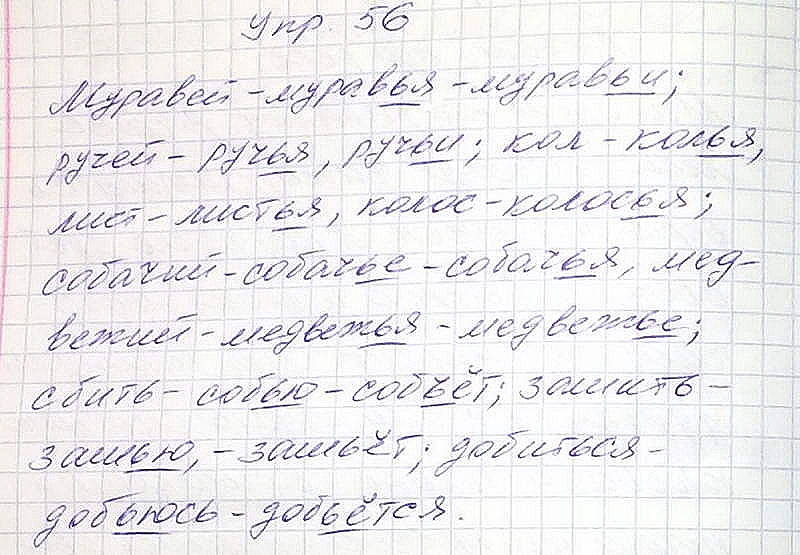 Упр. 56
Муравей - муравья - муравьи;
ручей - ручья, ручьи; кол - колья,
лист - листья, колос - колосья;
собачий - собачье - собачья, мед-
вежий - медвежья - медвежье;
сбить - собью - собъёт; зашить -
зашью, - зашьёт; добиться -
добьюсь - добьётся.